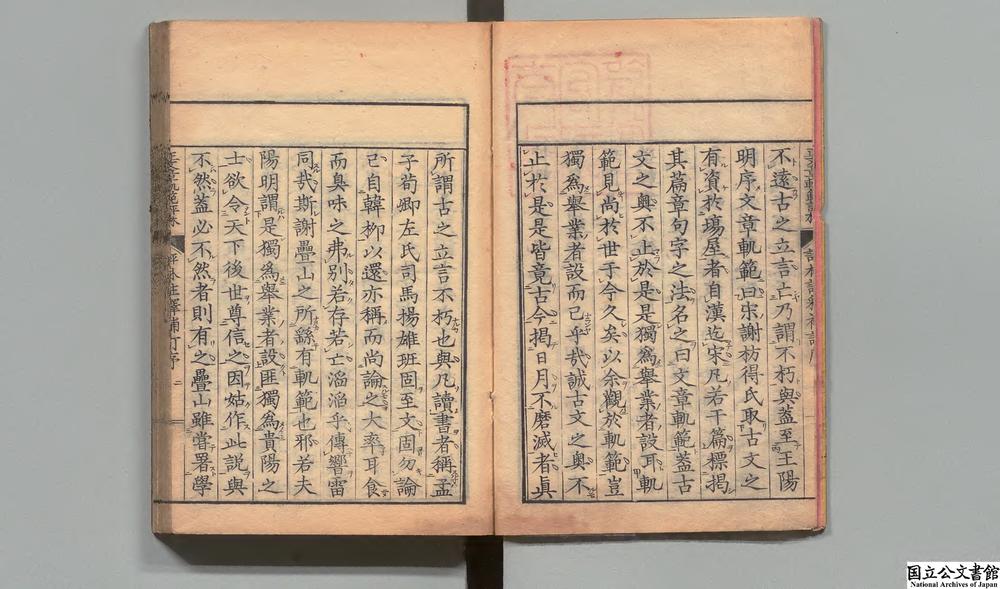 不遠古之立言上乃謂不朽與蓋至王陽
明序文章軌範曰宋謝枋得氏取古文之
有資於場屋者自漢迄宋凡若干篇標掲
其篇章句字之法名之曰文章軌範蓋古
文之奧不止於是是獨爲舉業者設耳軌
範見尚於世于今久矣以余觀於軌範豈
獨爲舉業者設而已乎哉誠古文之奧不
止於是是皆竟古今掲日月不磨滅者眞
所謂古之立言不朽也與凡讀書者稱孟
子荀卿左氏司馬揚雄班固至文固勿論
已自韓柳以還亦稱而尚論之大率耳食
而臭味之弗別若存若亡滔滔乎傳響雷
同哉斯謝疊山之所繇有軌範也邪若夫
陽明謂是獨爲舉業者設匪獨爲貴陽之
士欲令天下後世尊信之因姑作此説與
不然蓋必不然者則有之疊山雖嘗署學
国立公文書館
National Archives of Japan